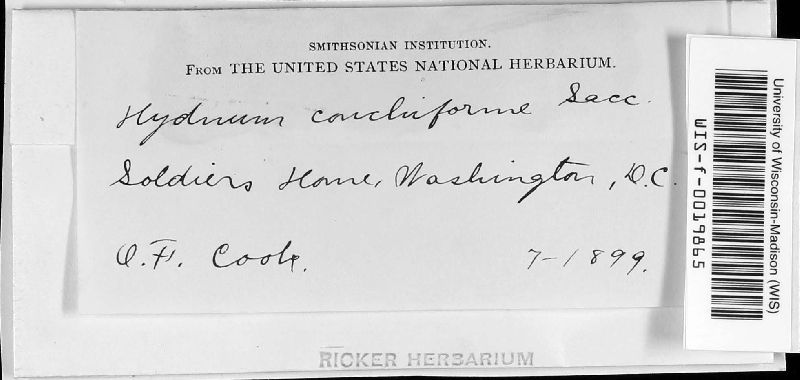 SMITHSONIAN INSTITUTION.
FROM THE UNITED STATES NATIONAL HERBARIUM.
Hydnum conchiforme Sacc.
Soldiers Home, Washington, D.C.
O.F. Cook.
7-1899.
RICKER HERBARIUM
University of Wisconsin-Madison (WIS)
WIS-f-0019865